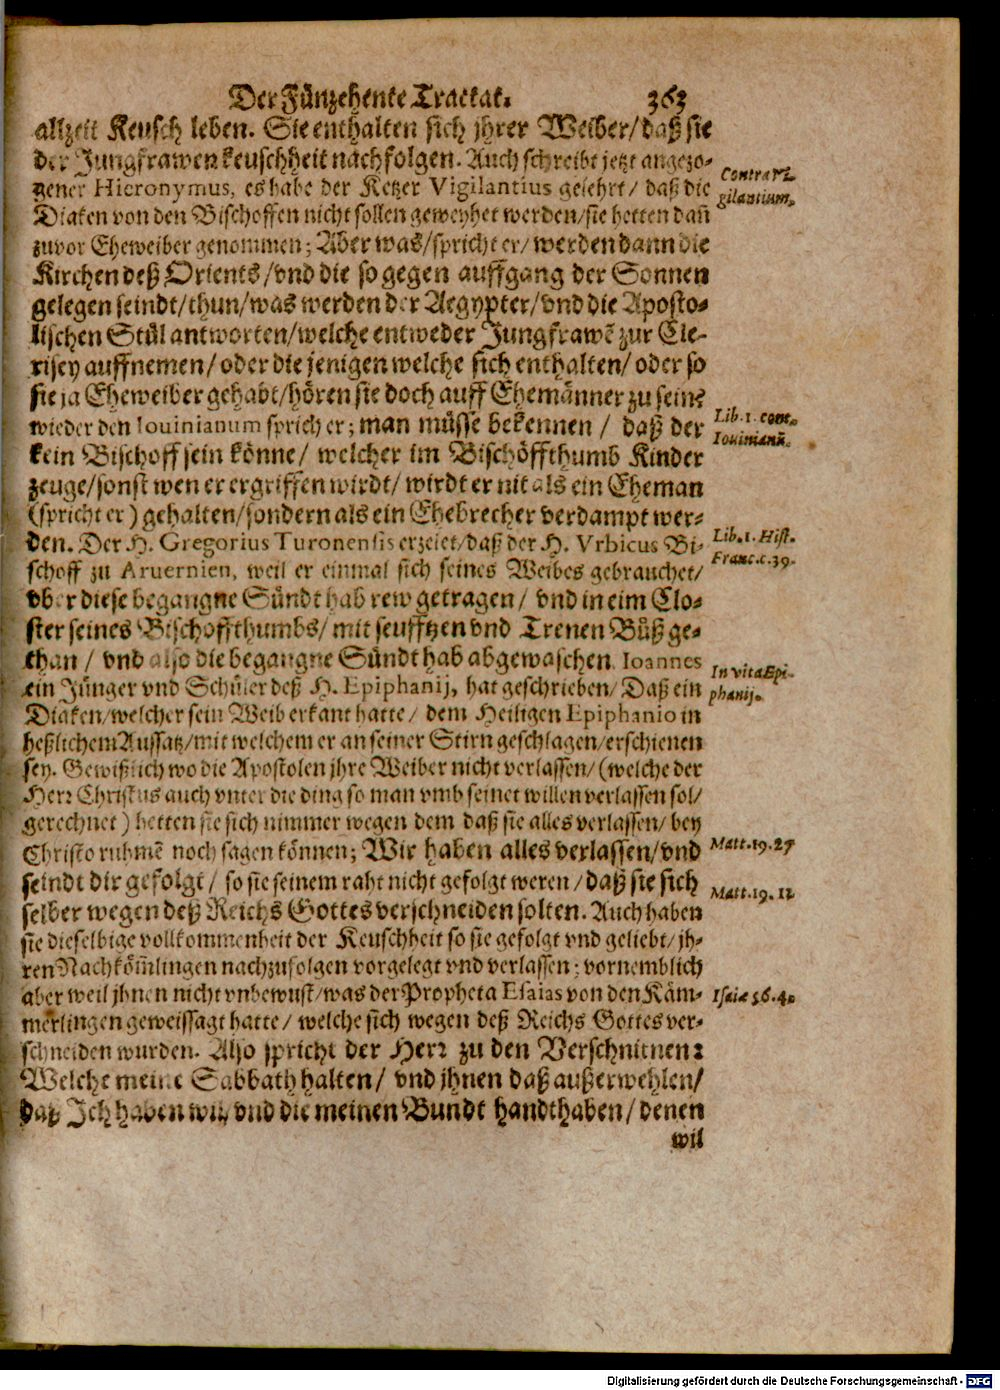 Der Fünzehente Tractat. 363
allzeit Keusch leben. Sie enthalten sich jhrer Weiber/daß sie
der Jungfrawen keuschheit nachfolgen. Auch schreibt jetzt angezo-
gener Hieronymus, es habe der Ketzer Vigilantius gelehrt/ daß die
Contra Vi-
gilantium.
Diaken von den Bischoffen nicht sollen geweyhet werden/sie hetten dañ
zuvor Eheweiber genommen; Aber was/spricht er/werden dann die
Kirchen deß Orients/vnd die so gegen auffgang der Sonnen
gelegen seindt/thun/was werden der Aegypter/vnd die Aposto-
lischen Stül antworten/welche entweder Jungfrawē zur Cle-
risey auffnemen/ oder die jenigen welche sich enthalten/ oder so
sie ja Eheweiber gehabt/hören sie doch auff Ehemänner zu sein:
wieder den Iouinianum sprich er; man müsse bekennen / daß der
Lib. 1. cont.
Iouinianũ.
kein Bischoff sein könne/ welcher im Bischöffthumb Kinder
zeuge/sonst wen er ergriffen wirdt/ wirdt er nit als ein Eheman
(spricht er) gehalten/sondern als ein Ehebrecher verdampt wer-
den. Der H. Gregorius Turonensis erzelet/daß der H. Vrbicus Bi-
Lib. 1. Hist.
Franc. c. 39.
schoff zu Aruernien, weil er einmal sich seines Weibes gebrauchet/
vber diese begangne Sündt hab rew getragen/ vnd in eim Clo-
ster seines Bischoffthumbs/ mit seufftzen vnd Trenen Büß ge-
than / vnd also die begangne Sündt hab abgewaschen. Ioannes
In vita Epi-
phanij.
ein Jünger vnd Schüler deß H. Epiphanij, hat geschrieben/ Daß ein
Diaken/welcher sein Weib erkant hatte/ dem Heiligen Epiphanio in
heßlichem Aussatz/mit welchem er an seiner Stirn geschlagen/erschienen
sey. Gewißlich wo die Apostolen jhre Weiber nicht verlassen/(welche der
Herr Christus auch vnter die ding so man vmb seinet willen verlassen sol/
gerechnet) hetten sie sich nimmer wegen dem daß sie alles verlassen/ bey
Christo ruhmē noch sagen können; Wir haben alles verlassen/vnd
Matt. 19. 27
seindt dir gefolgt/ so sie seinem raht nicht gefolgt weren/daß sie sich
Matt. 19. 12
selber wegen deß Reichs Gottes verschneiden solten. Auch haben
sie dieselbige vollkommenheit der Keuschheit so sie gefolgt vnd geliebt/jh-
ren Nachköm̃lingen nachzufolgen vorgelegt vnd verlassen; vornemblich
aber weil jhnen nicht vnbewust/was der Propheta Esaias von den Käm-
Isaiæ 56. 4.
merlingen geweissagt hatte/ welche sich wegen deß Reichs Gottes ver-
schneiden wurden. Also spricht der Herr zu den Verschnitnen:
Welche meine Sabbath halten/ vnd jhnen daß außerwehlen/
daß Ich haben wil, vnd die meinen Bundt handthaben/ denen
wil
Digitalisierung gefördert durch die Deutsche Forschungsgemeinschaft - DFG